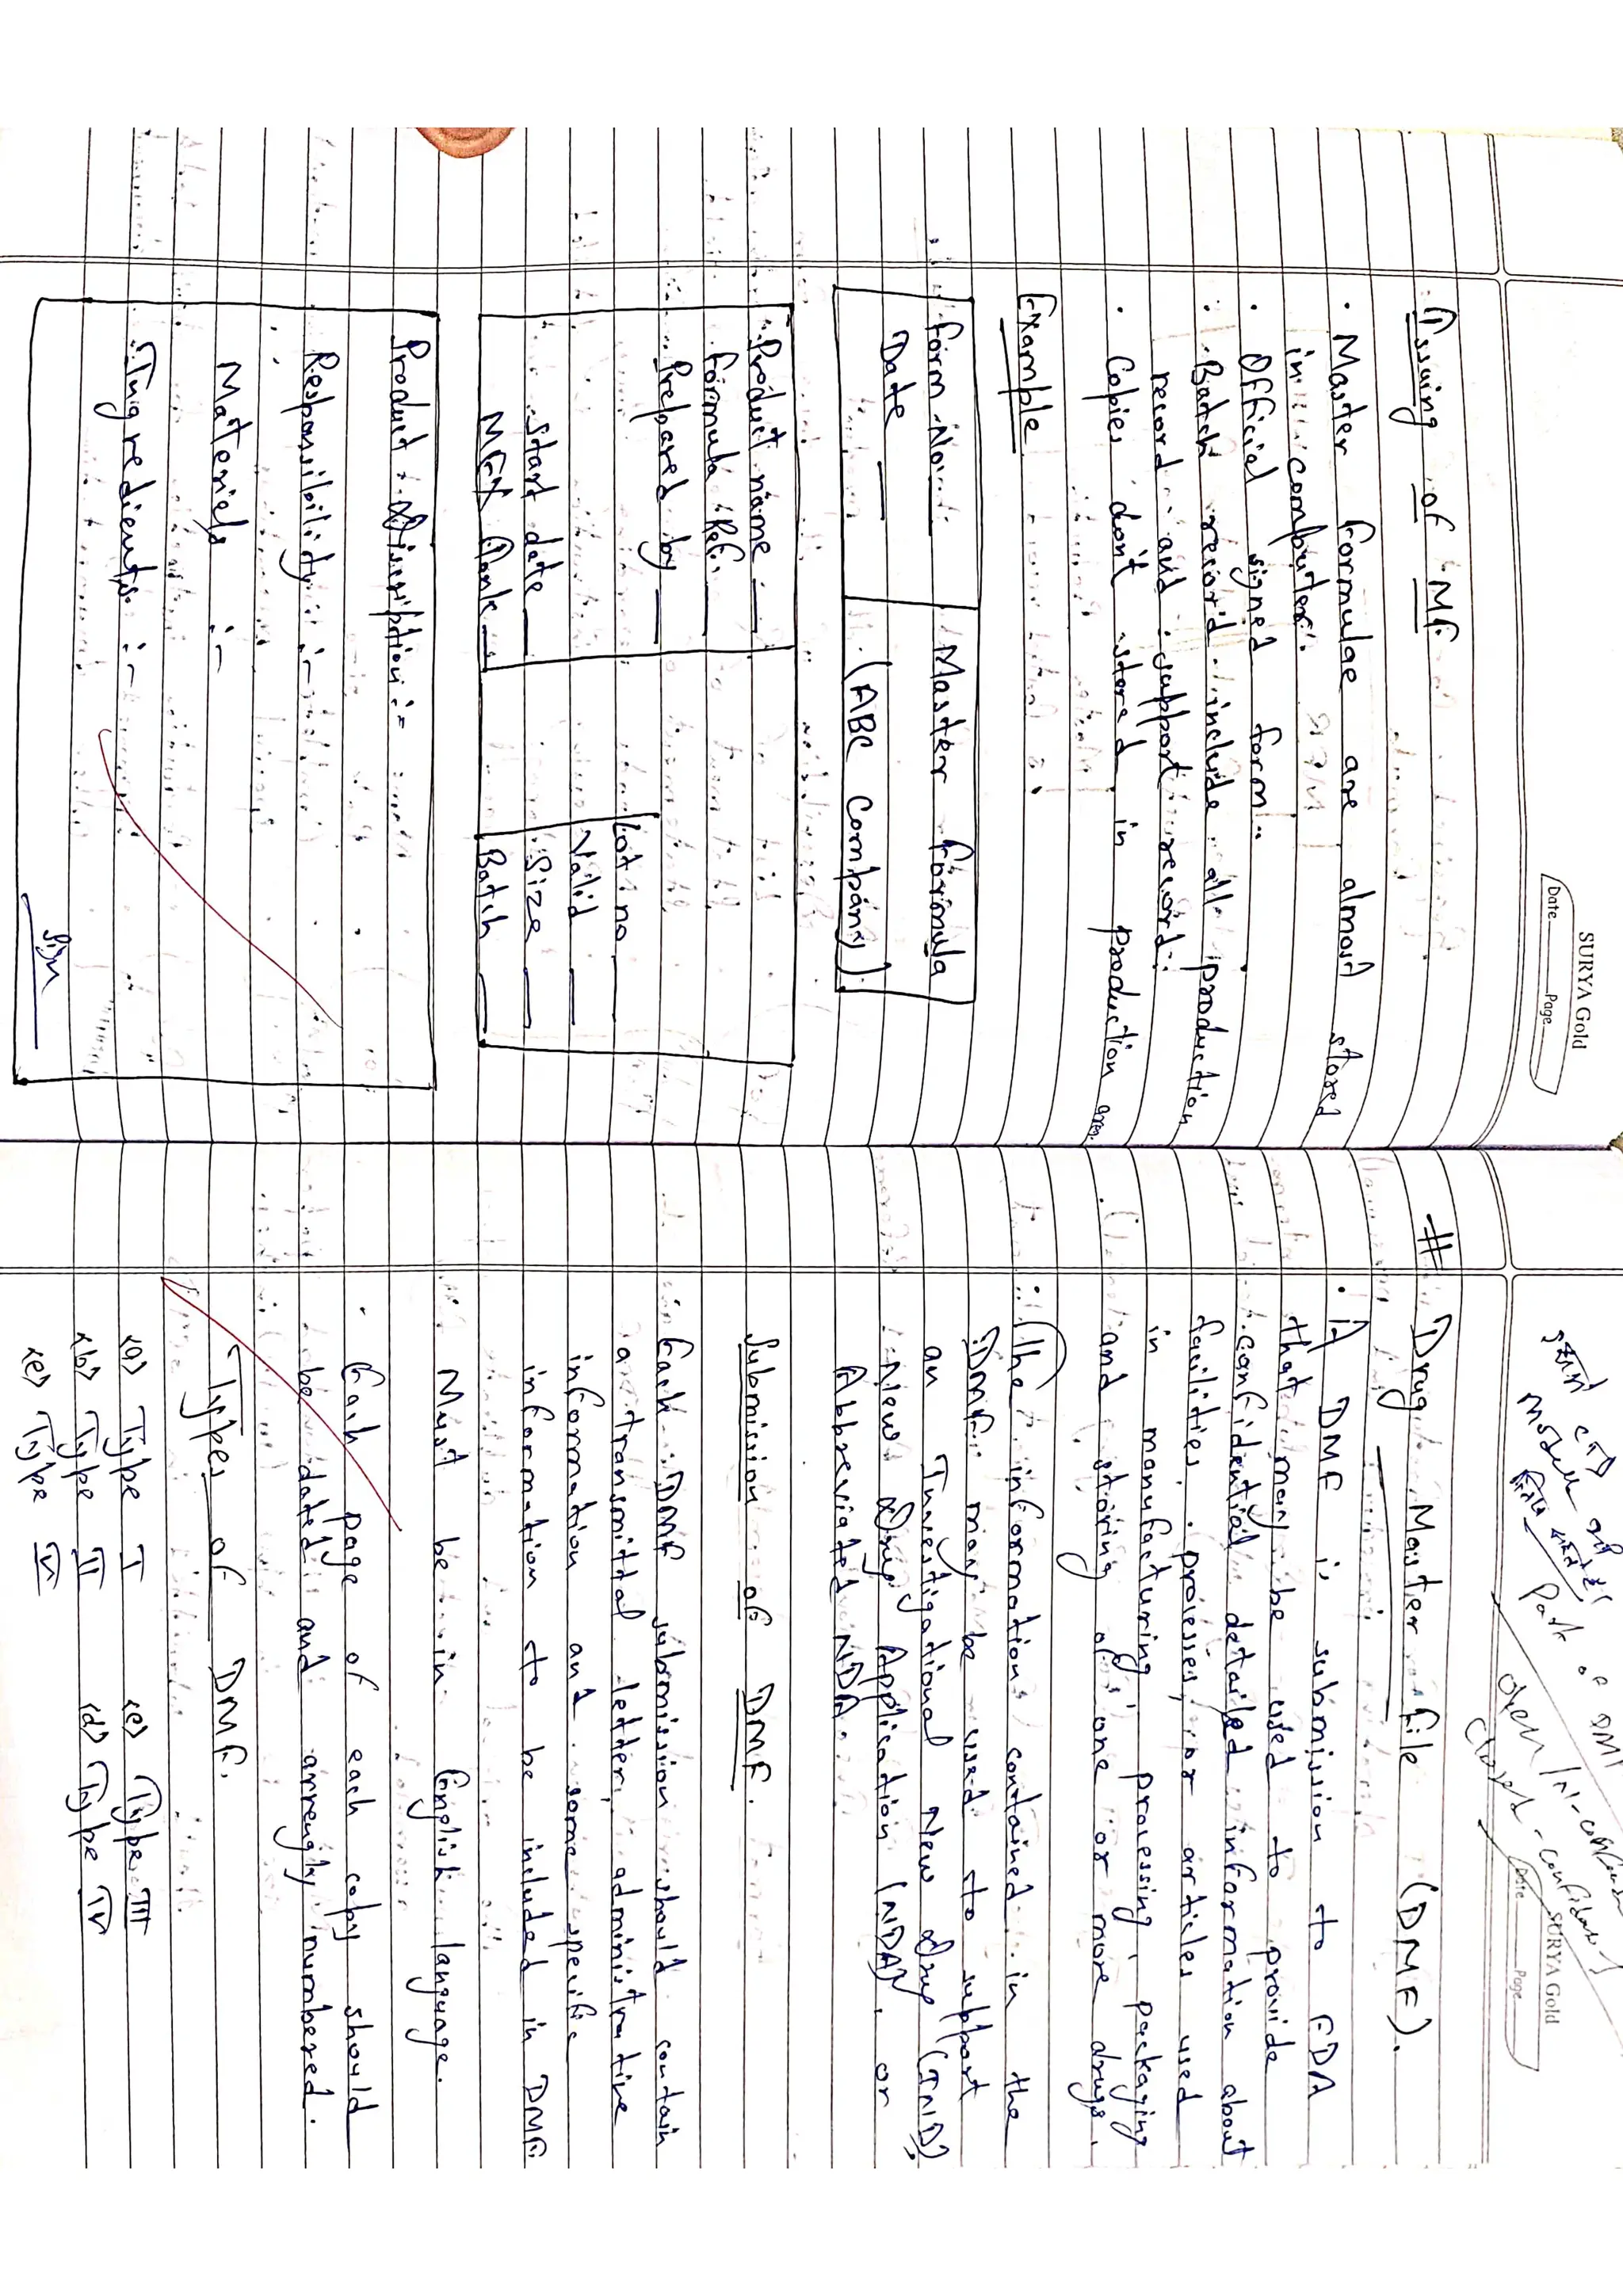 SURYA Gold
Date Page
Issuing of MF
• Master formulae are almost stored
in computer.
• Official signed form
• Batch record include all production
record and support record.
• Copies don't stored in production area.
Example
Form No. Master Formula
Date (ABC Company)
Product name
Formula Ref.
Prepared by
Lot no
Valid
Start date Size
Batch
Product Discription :-
Responsibility :-
Materiels :-
Ingredients :-
Module
Part of DMF
open /
closed -
SURYA Gold
Date Page
# Drug Master File (DMF).
• A DMF is submission to FDA
that may be used to provide
confidential detailed information about
facilities, processes, or articles used
in manufacturing, processing, packaging
and storing of one or more drugs.
• The information contained in the
DMF may be used to support
an Investigational New Drug (IND),
New Drug Application (NDA), or
Abbreviated NDA.
Submission of DMF.
Each DMF submission should contain
a transmital letter, administrative
information and some specific
information to be included in DMF.
Must be in English language.
• Each page of each copy should
be dated and arrengly numbered.
Types of DMF.
(a) Type I (c) Type III
(b) Type II (d) Type IV
(e) Type V